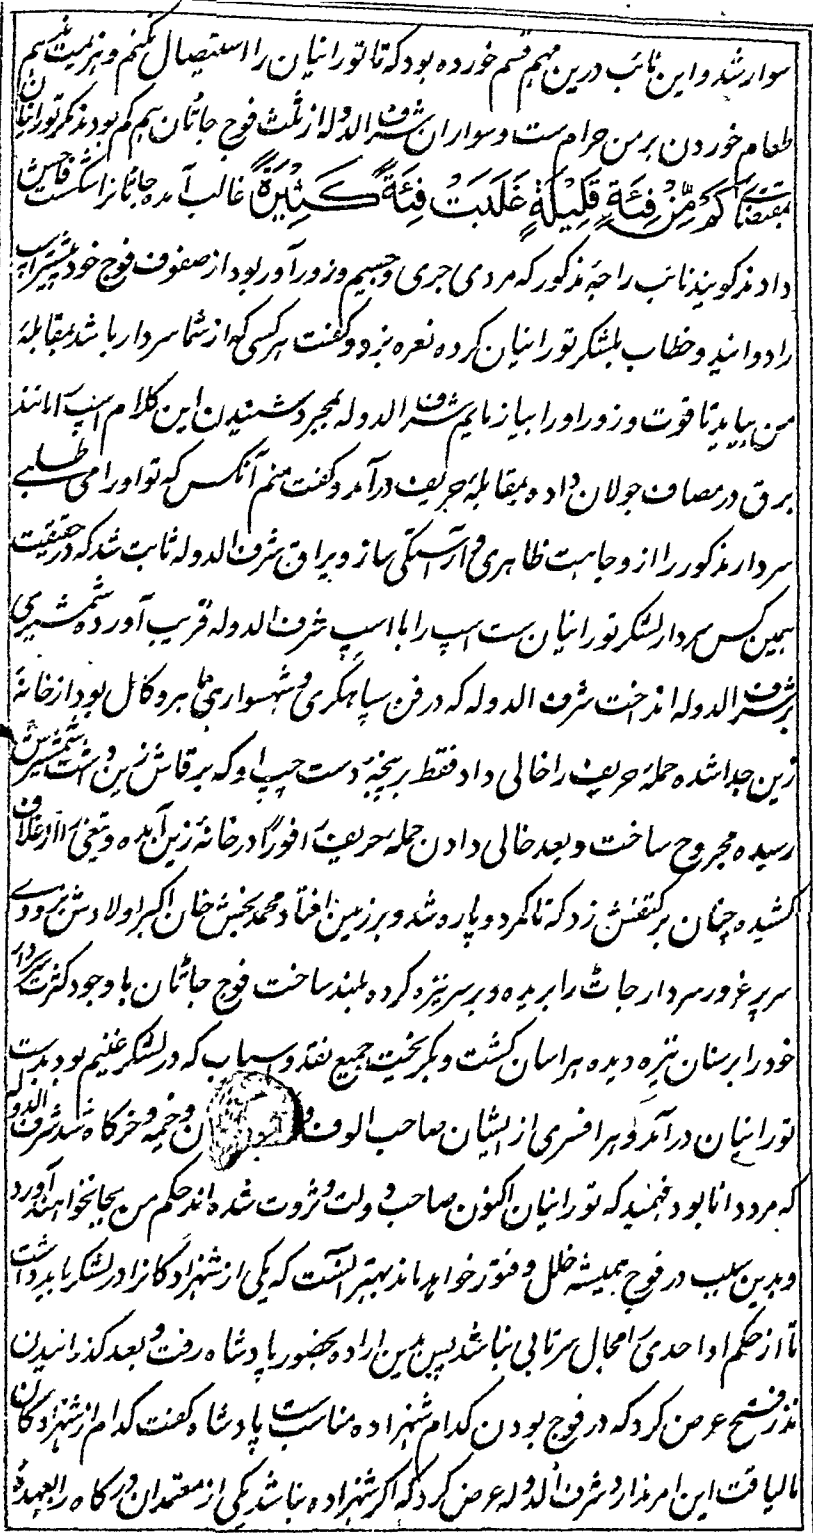 سوار شد و این نائب درین مهم قسم خورده بود که تا تورانیان را استیصال نکنم و هزیمت ندهم
طعام خوردن بر من حرام ست و سواران شرف الدوله از ثلث فوج جاٹان هم کم بودند مگر تورانیان
بمقتضای كَم مِّنْ فِئَةٍ قَلِيْلَةٍ غَلَبَتْ فِئَةً كَثِيْرَةً غالب آمده جاٹانرا شکست فاحش
دادند گویند نائب راجهٔ مذکور که مردی جری و جسیم و زورآور بود از صفوف فوج خود پیشتر اسپ
را دوانید و خطاب بلشکر تورانیان کرده نعره بزد و گفت هر کسی که از شما سردار باشد بمقابلهٔ
من بیاید تا قوت و زور او را بیازمایم شرف الدوله بمجرد شنیدن این کلام اسپ را مانند
برق در مصاف جولان داده بمقابلهٔ حریف درآمد و گفت منم آنکس که تو او را می طلبی
سردار مذکور را از وجاهت ظاهری و آراستگی ساز و یراق شرف الدوله ثابت شد که در حقیقت
همین کس سردار لشکر تورانیان ست اسپ را با اسپ شرف الدوله قریب آورده شمشیری
بر شرف الدوله انداخت شرف الدوله که در فن سپاهگری و شهسواری ماهر و کامل بود از خانهٔ
زین جدا شده حملهٔ حریف را خالی داد فقط بر پنجهٔ دست چپ او که بر قاش زین داشت شمشیرش
رسیده مجروح ساخت و بعد خالی دادن حملهٔ حریف فوراً در خانهٔ زین آمده و تیغی را از غلاف
کشیده چنان بر کتفش زد که تا کمر دو پاره شد و بر زمین افتاد محمد بخش خان اکبر اولادش بزودی
سر پر غرور سردار جاٹ را بریده و بر سر نیزه کرده بلند ساخت فوج جاٹان با وجود کثرت سردار
خود را بر سنان نیزه دیده هراسان گشت و بگریخت جمیع نقد و اسباب که در لشکر غنیم بود بدست
تورانیان درآمد و هر افسری از ایشان صاحب الوف و و خیمه و خرگاه شد شرف الدوله
که مرد دانا بود فهمید که تورانیان اکنون صاحب دولت و ثروت شده اند حکم من بجا نخواهند آورد
و بدین سبب در فوج همیشه خلل و فتور خواهد ماند بهتر آنست که یکی از شهزادگانرا در لشکر باید داشت
تا از حکم او احدی را مجال سرتابی نباشد پس بدین اراده بحضور پادشاه رفت و بعد گذرانیدن
نذر فتح عرض کرد که در فوج بودن کدام شهزاده مناسب ست پادشاه گفت کدام از شهزادگان
ما لیاقت این امر ندارد شرف الدوله عرض کرد که اگر شهزاده نباشد یکی از معتمدان درگاه را بعهدهٔ